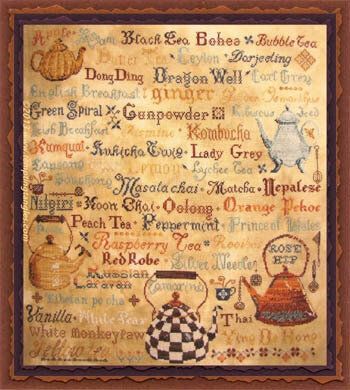 Apple Assam Black Tea Bohea Bubble Tea
Butter Tea Ceylon Darjeeling
Dong Ding Dragon Well Earl Grey
English Breakfast ginger
Green Spiral Gunpowder Hibiscus Iced
Irish Breakfast Jasmine Kombucha
Kumquat Kukicha Lady Grey
Lapsang Lemon Lychee Tea
Souchong
Masala chai Matcha Nepalese
Nilgiri Noon Chai Oolong Orange Pekoe
Peach Tea Peppermint Prince of Wales
Raspberry Tea Rooibos
Red Robe Silver Needles
ROSE
HIP
Russian
Caravan Tamarind
Tibetan po cha
Vanilla White Pear Thai
White monkey paw Ying De Hong